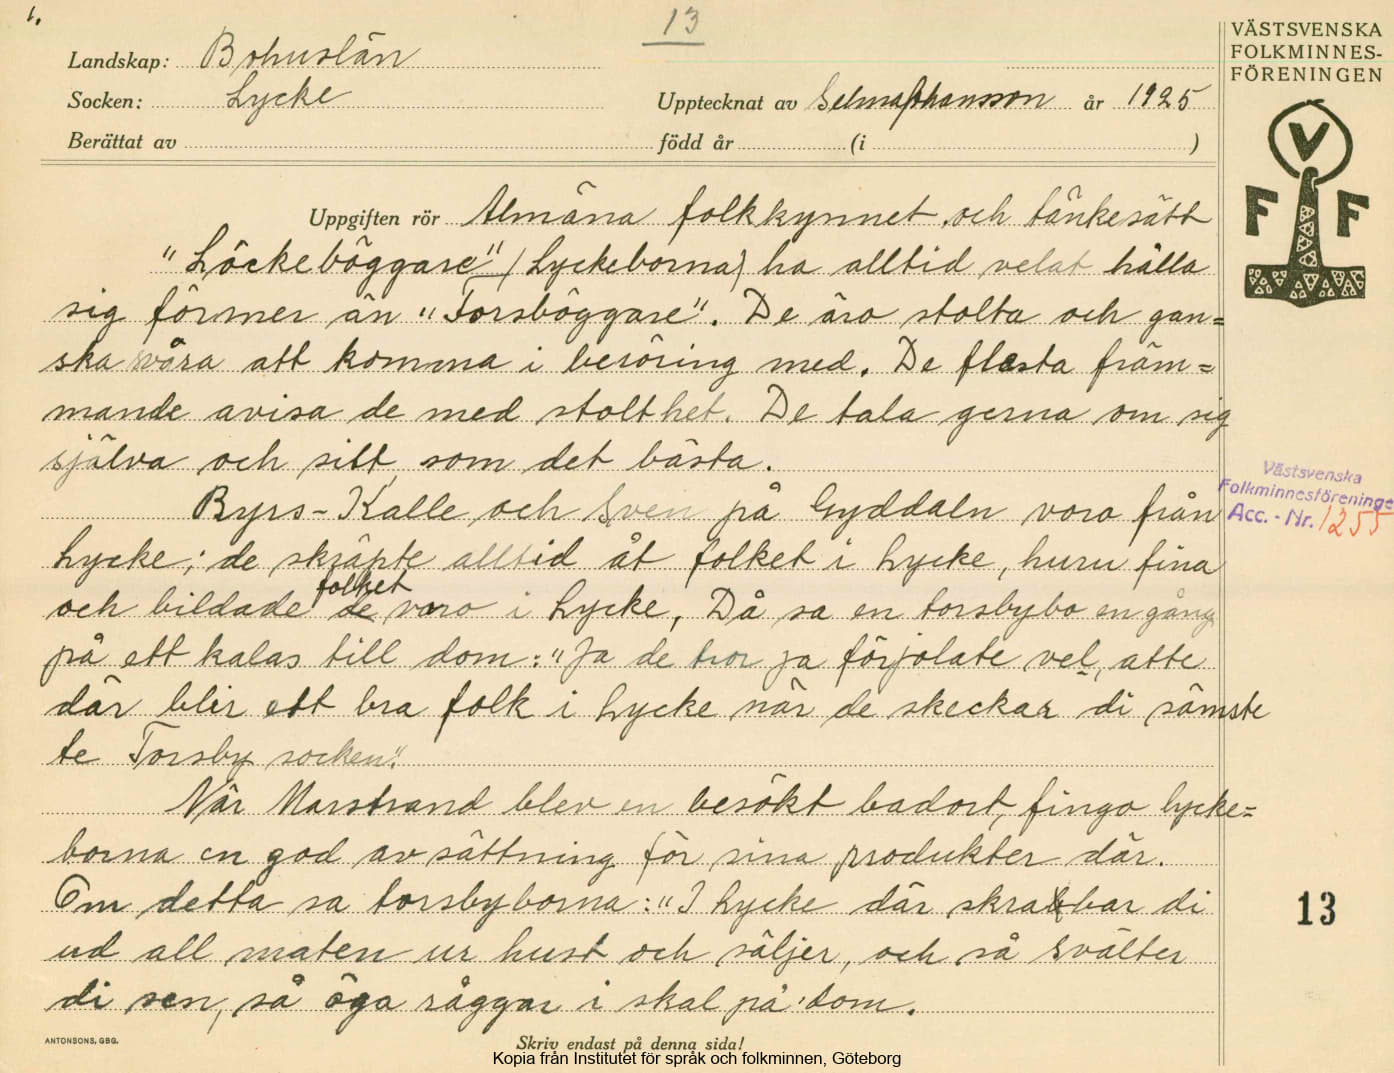 1.
13
VÄSTSVENSKA
FOLKMINNES-
FÖRENINGEN
V
F F
Landskap: Bohuslän
Socken: Lycke
Upptecknat av Selma Johansson år 1925
Berättat av född år (i )
Uppgiften rör Almäna folkkynnet och tänkesätt
"Löckeböggare" (Lyckeborna) ha alltid velat hålla
sig förmer än "Torsböggare". De äro stolta och gan=
ska svåra att komma i beröring med. De flesta främ=
mande avisa de med stolthet. De tala gerna om sig
själva och sitt, som det bästa.
Byrs-Kalle och Sven på Gyddaln voro från
Lycke; de skräpte alltid åt folket i Lycke, huru fina
folket
och bildade de voro i Lycke, Då sa en torsbybo en gång
på ett kalas till dom: "Ja de tror ja förjolate vel, atte
där blir ett bra folk i Lycke när de skeckar di sämste
te Torsby socken".
När Marstrand blev en besökt badort, fingo lycke=
borna en god avsättning för sina produkter där.
Om detta sa torsbyborna: "I Lycke där skrabbar di
ud all maten ur hust och säljer, och så svälter
di sen, så öga råggar i skal på dom.
Västsvenska
Folkminnesföreninge
Acc. - Nr. 1255
13
ANTONSONS, GBG.
Skriv endast på denna sida!
Kopia från Institutet för språk och folkminnen, Göteborg